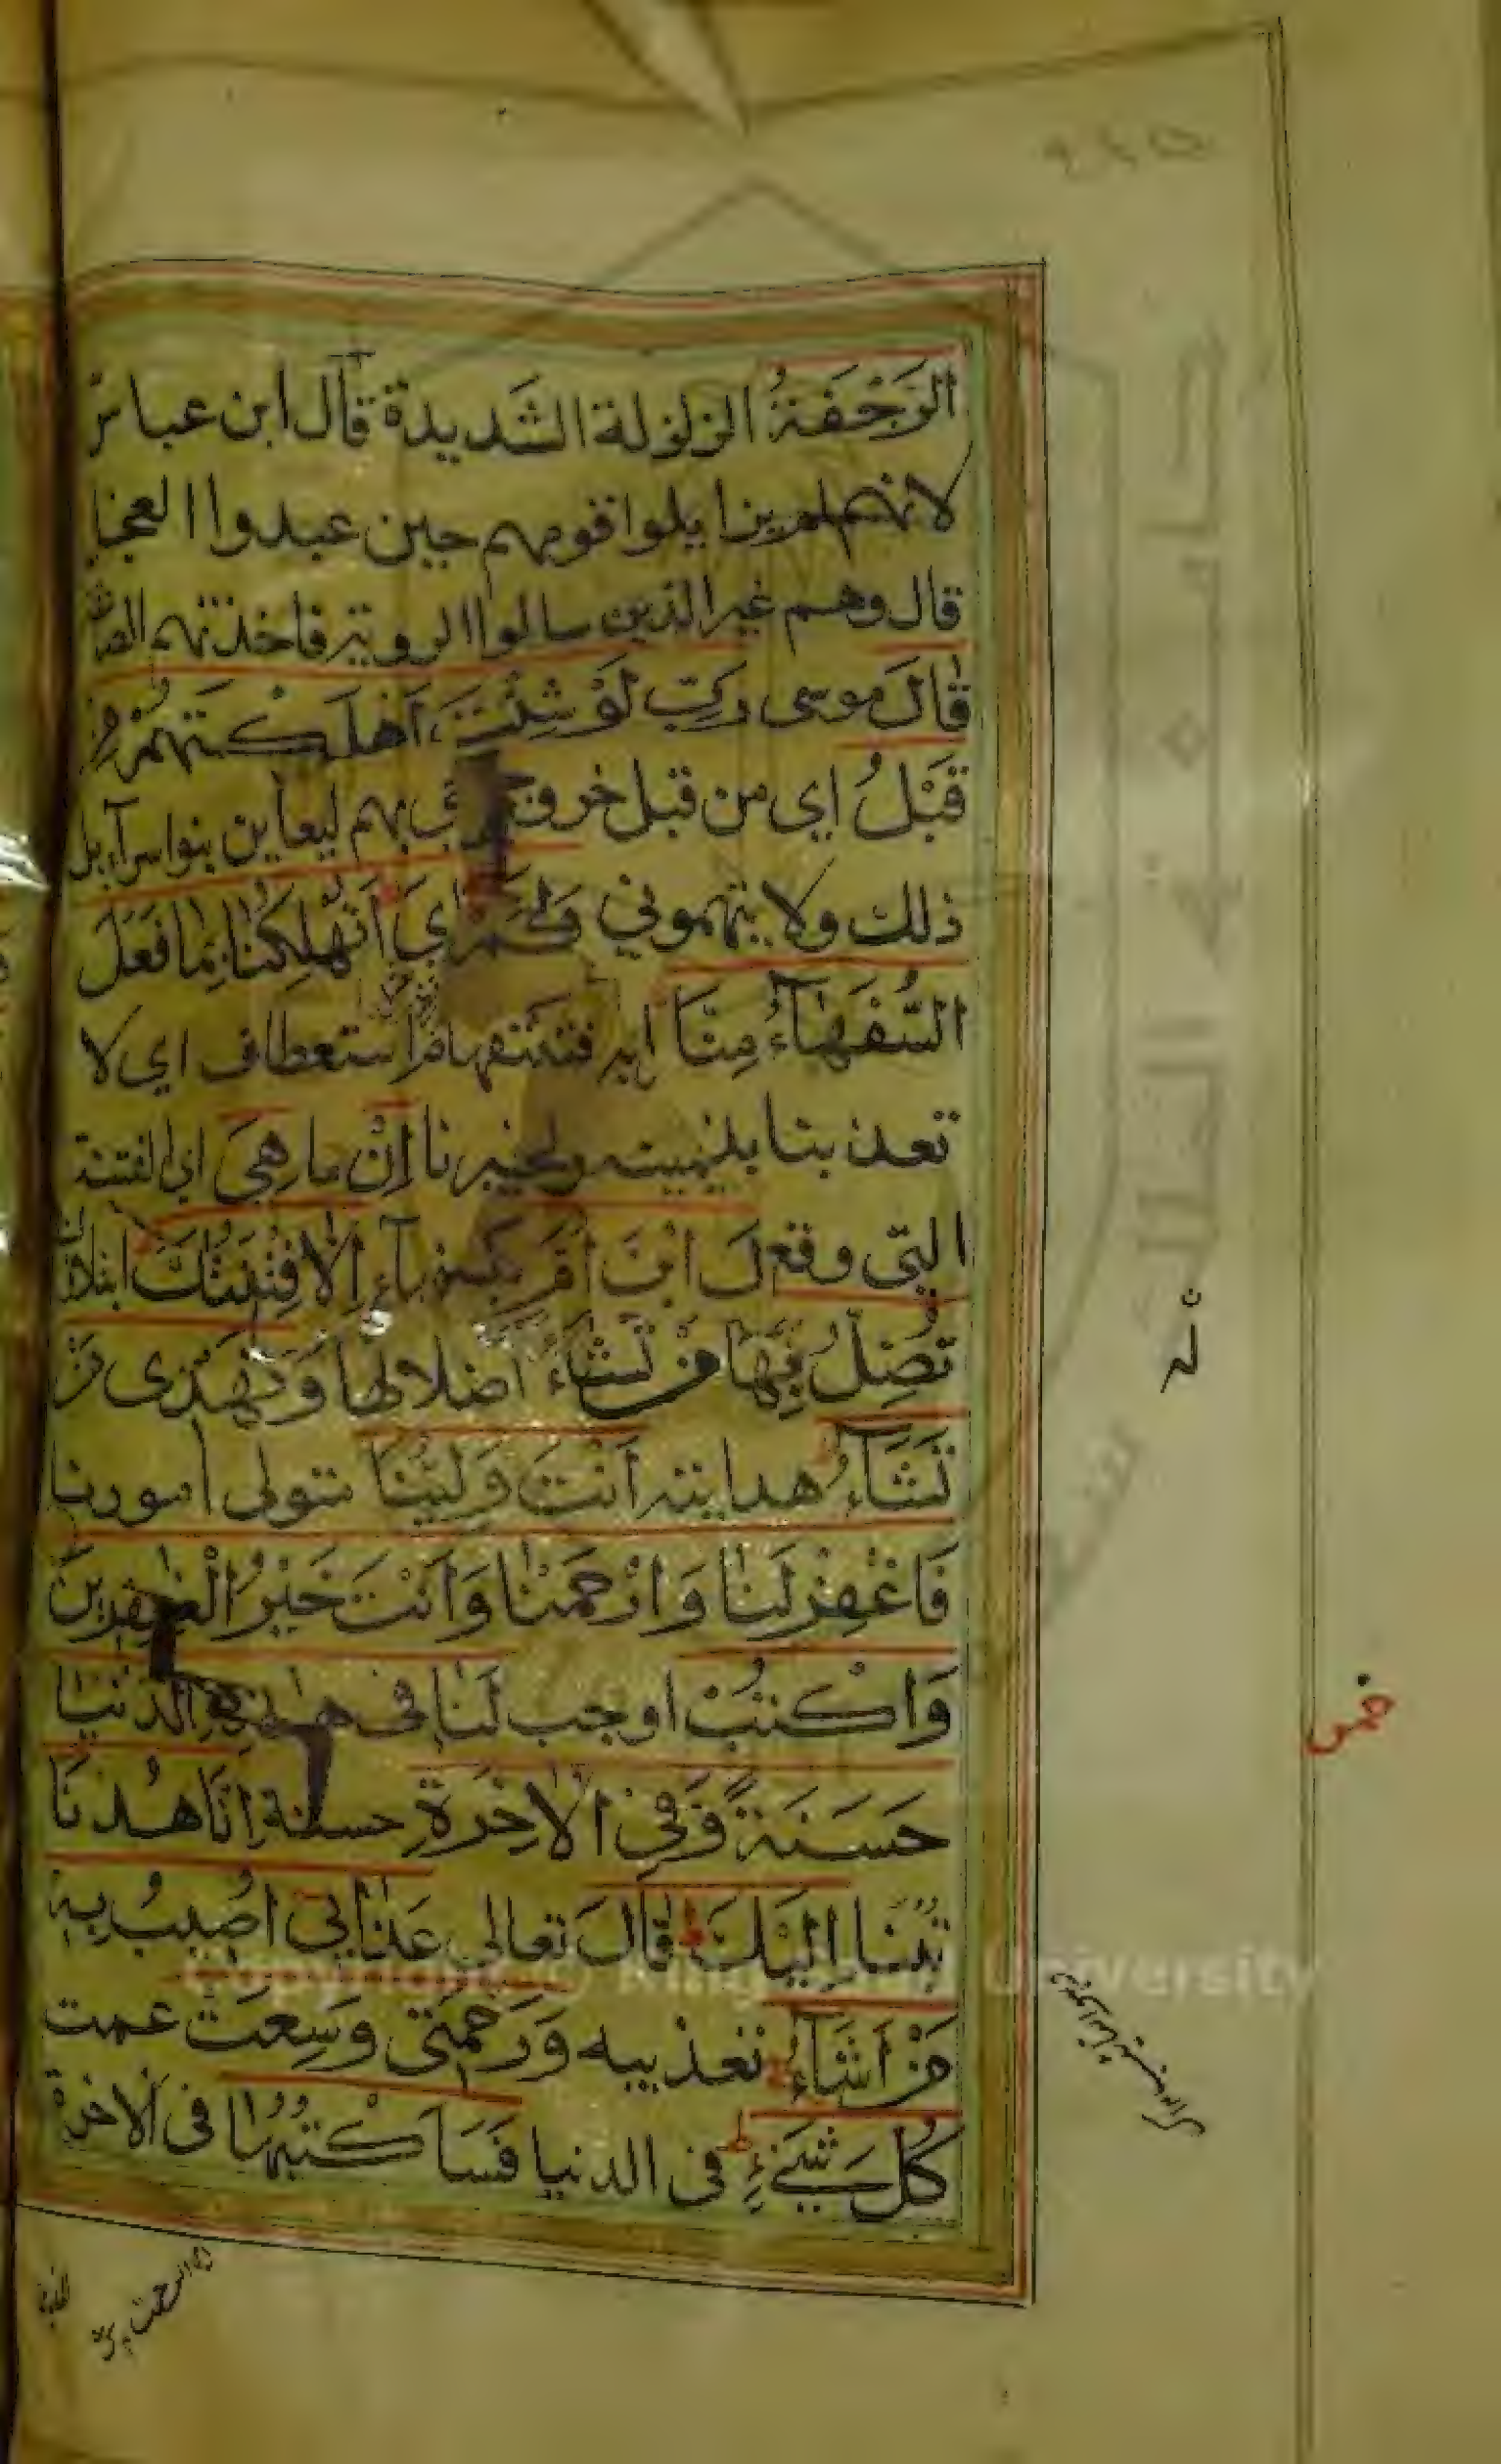 الرَّجْفَةُ الزلزلة الشَديدة قال ابن عباس
لانهم لم يزايلوا قومهم حين عبدوا العجل
قال وهم غير الذين سالوا الروية فاخذتهم
قَالَ موسى رَبِّ لَوْ شِئْتَ اَهْلَكْتَهُمْ مِنْ
قَبْلُ اي من قبل خروجي بهم ليعاين بنوا سرآءيل
ذلك ولا يتهموني وَاِيَّايَ اَتُهْلِكُنَا بِمَا فَعَلَ
السُّفَهَآءُ مِنَّا استعطاف اي لا
تعذبنا اِنْ ما هِيَ اي الفتنة
التي وقع السفهآء اِلَّا فِتْنَتُكَ ابتلاؤك
تُضِلُّ بِهَا مَنْ تَشَآءُ اضلالها وَتَهْدِى مَنْ
تَشَآءُ هدايته اَنْتَ وَلِيُّنَا متولى امورنا
فَاغْفِرْ لَنَا وَارْحَمْنَا وَاَنْتَ خَيْرُ الْغٰفِرِينَ
وَاكْتُبْ اوجب لَنَا فى هٰذِهِ الدُّنْيَا
حَسَنَةً وَّفِي الْاٰخِرَةِ حسنة اِنَّا هُدْنَا
تبنا اِلَيْكَ قَالَ تعالى عَذَابِي اُصِيبُ بِهِ
مَنْ اَشَآءُ تعذيبه وَرَحْمَتِى وَسِعَتْ عمت
كُلَّ شَيْءٍ فى الدنيا فَسَاَكْتُبُهَا فى الاخرة
خمس
Copyright © King University